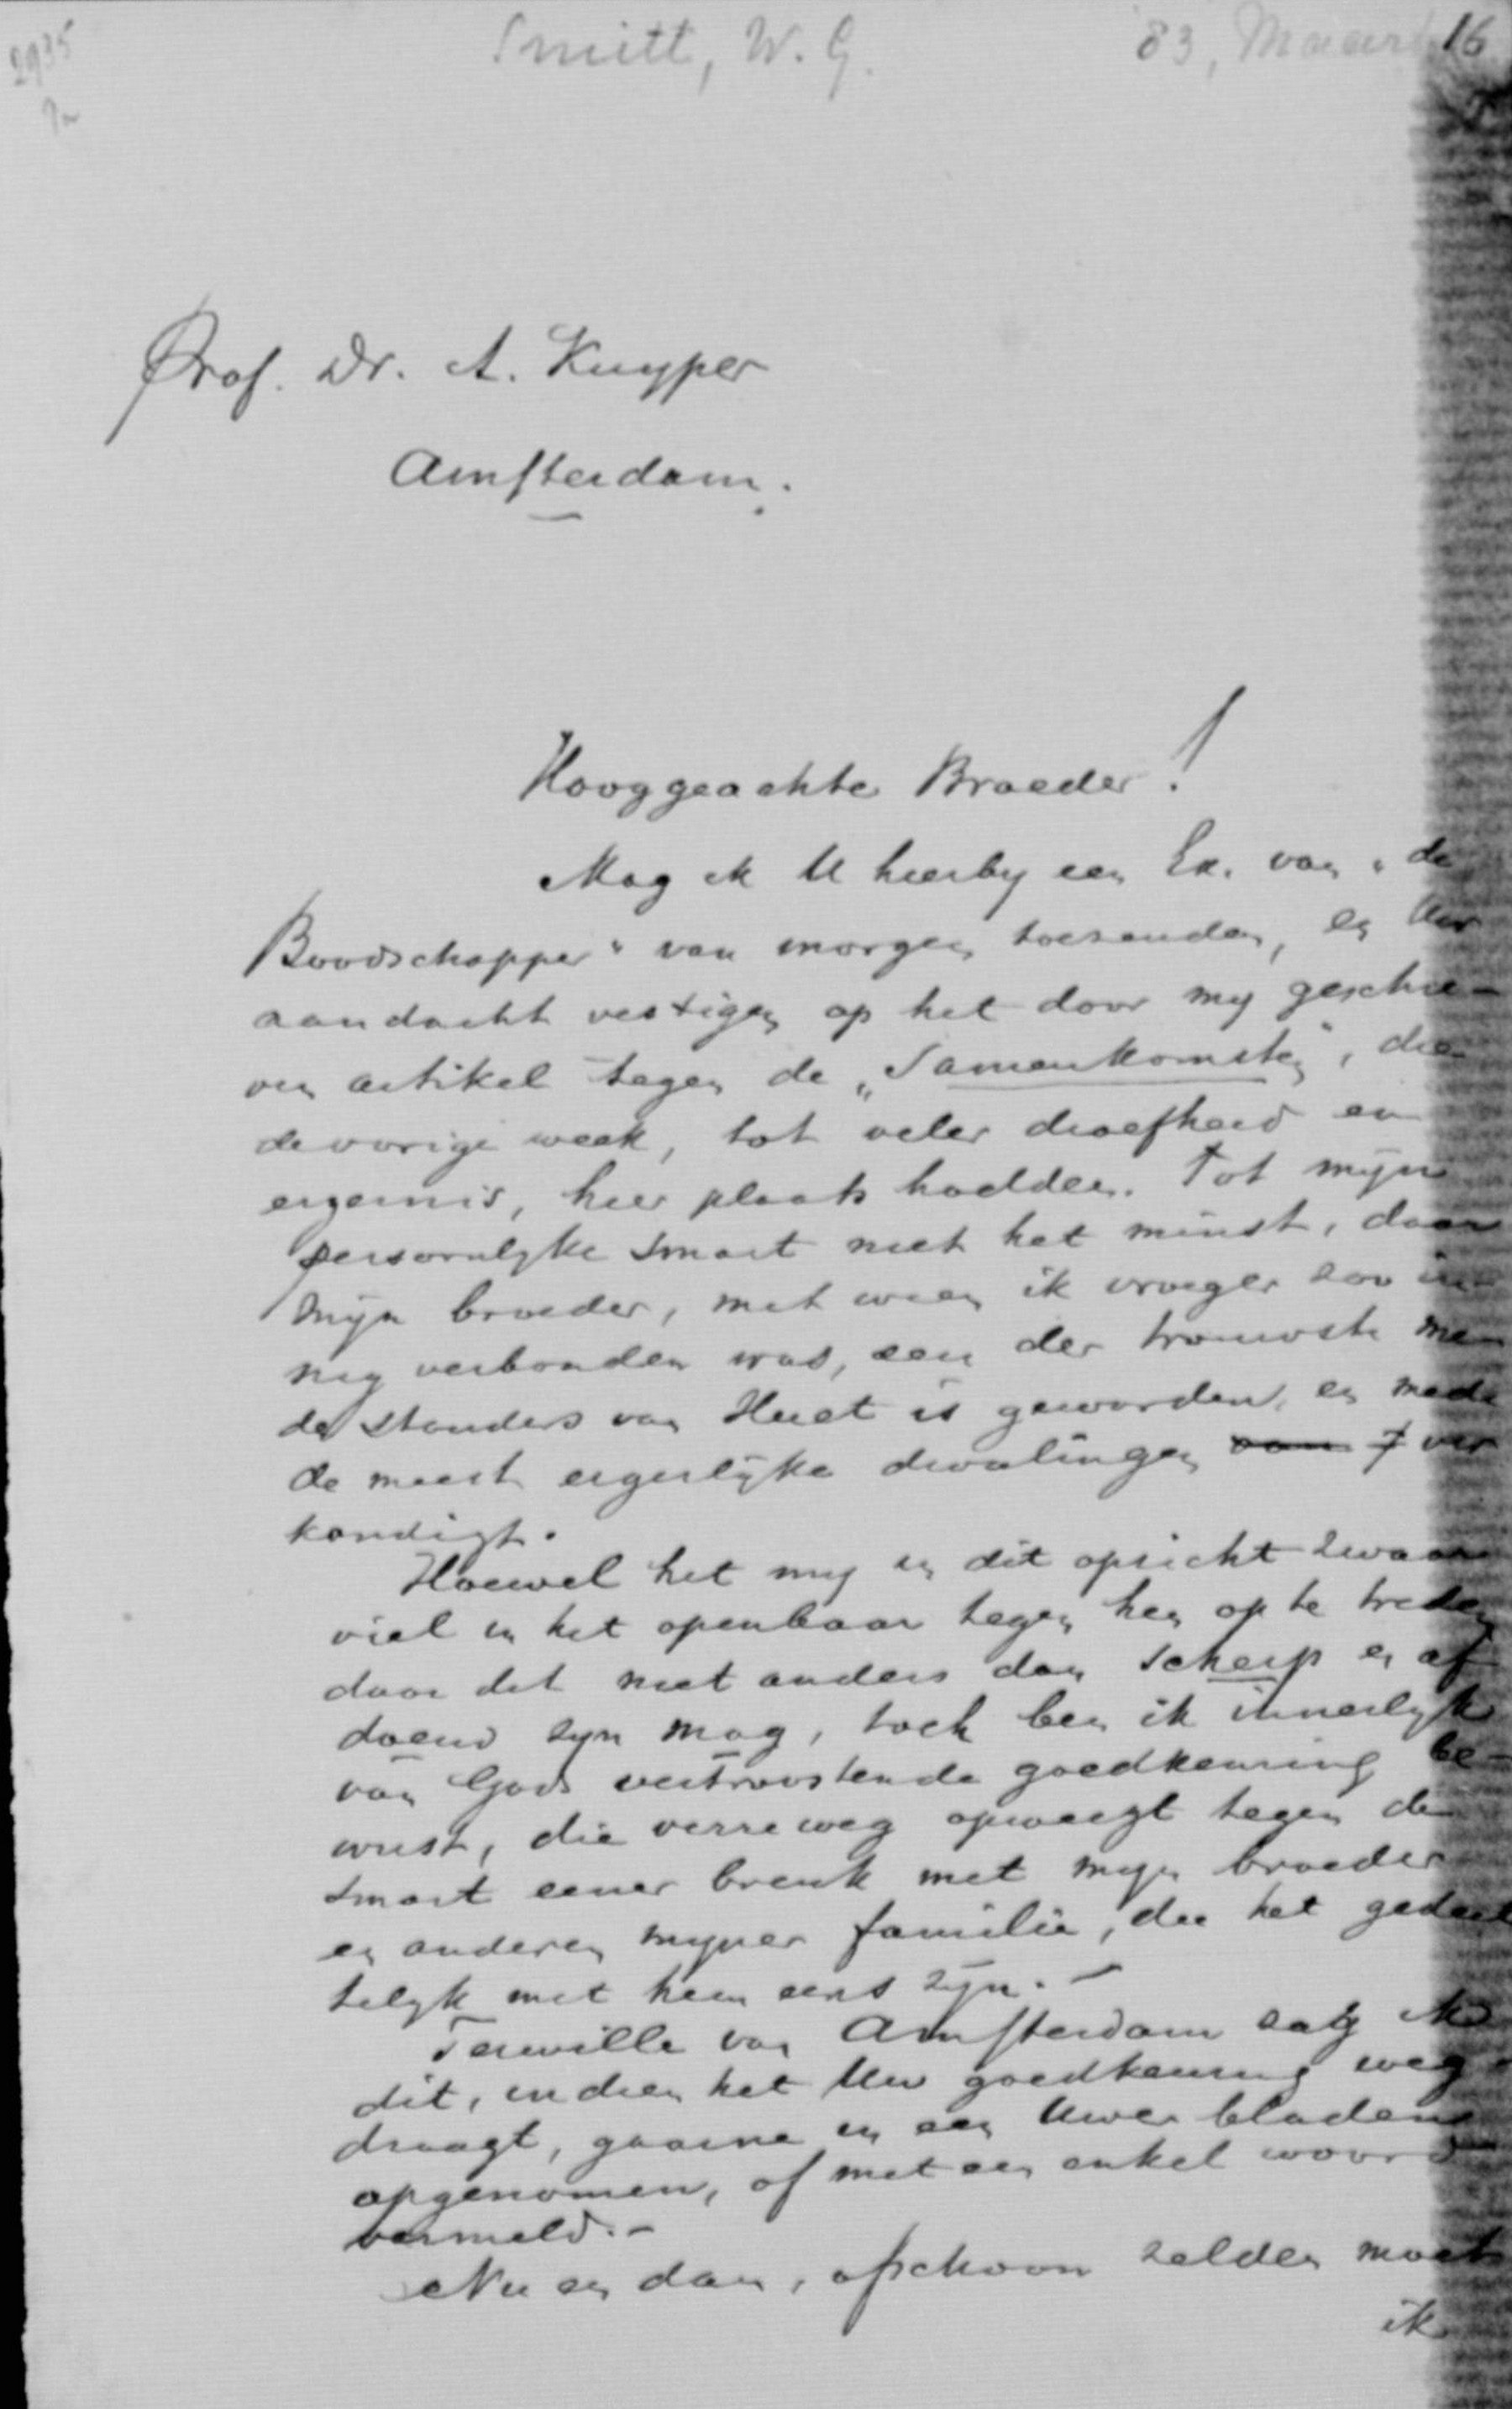 2935
Smitt, W. G. '83, Maart 16
Prof. Dr. A. Kuyper
Amsterdam.
Hooggeachte Broeder!
Mag ik U hierby een Ex. van „de
Boodschapper" van morgen toezenden, en Uw
aandacht vestigen op het door my geschre-
ven artikel tegen de „Samenkomsten", die
de vorige week, tot veler droefheid en
ergernis, hier plaats hadden. Tot mijne
persoonlyke smart niet het minst, daar
mijn broeder, met wien ik vroeger zoo in-
nig verbonden was, een der trouwste me-
destanders van Huet is geworden, en mede
de meest ergerlijke dwalingen van ver
kondigt.
Hoewel het my in dit opzicht zwaar
viel in het openbaar tegen hen op te treden
daar dit niet anders dan scherp en af
doend zyn mag, toch ben ik innerlyk
van Gods vertroostende goedkeuring be-
wust, die verre weg opweegt tegen de
smart eener breuk met myn broeder
en anderen myner familie, die het gedeel
telyk met hem eens zijn. -
Terwille van Amsterdam zag ik
dit, indien het Uw goedkeuring weg-
draagt, gaarne in een Uwer bladen
opgenomen, of met een enkel woord
vermeld. -
Nu en dan, ofschoon zelden moet
ik